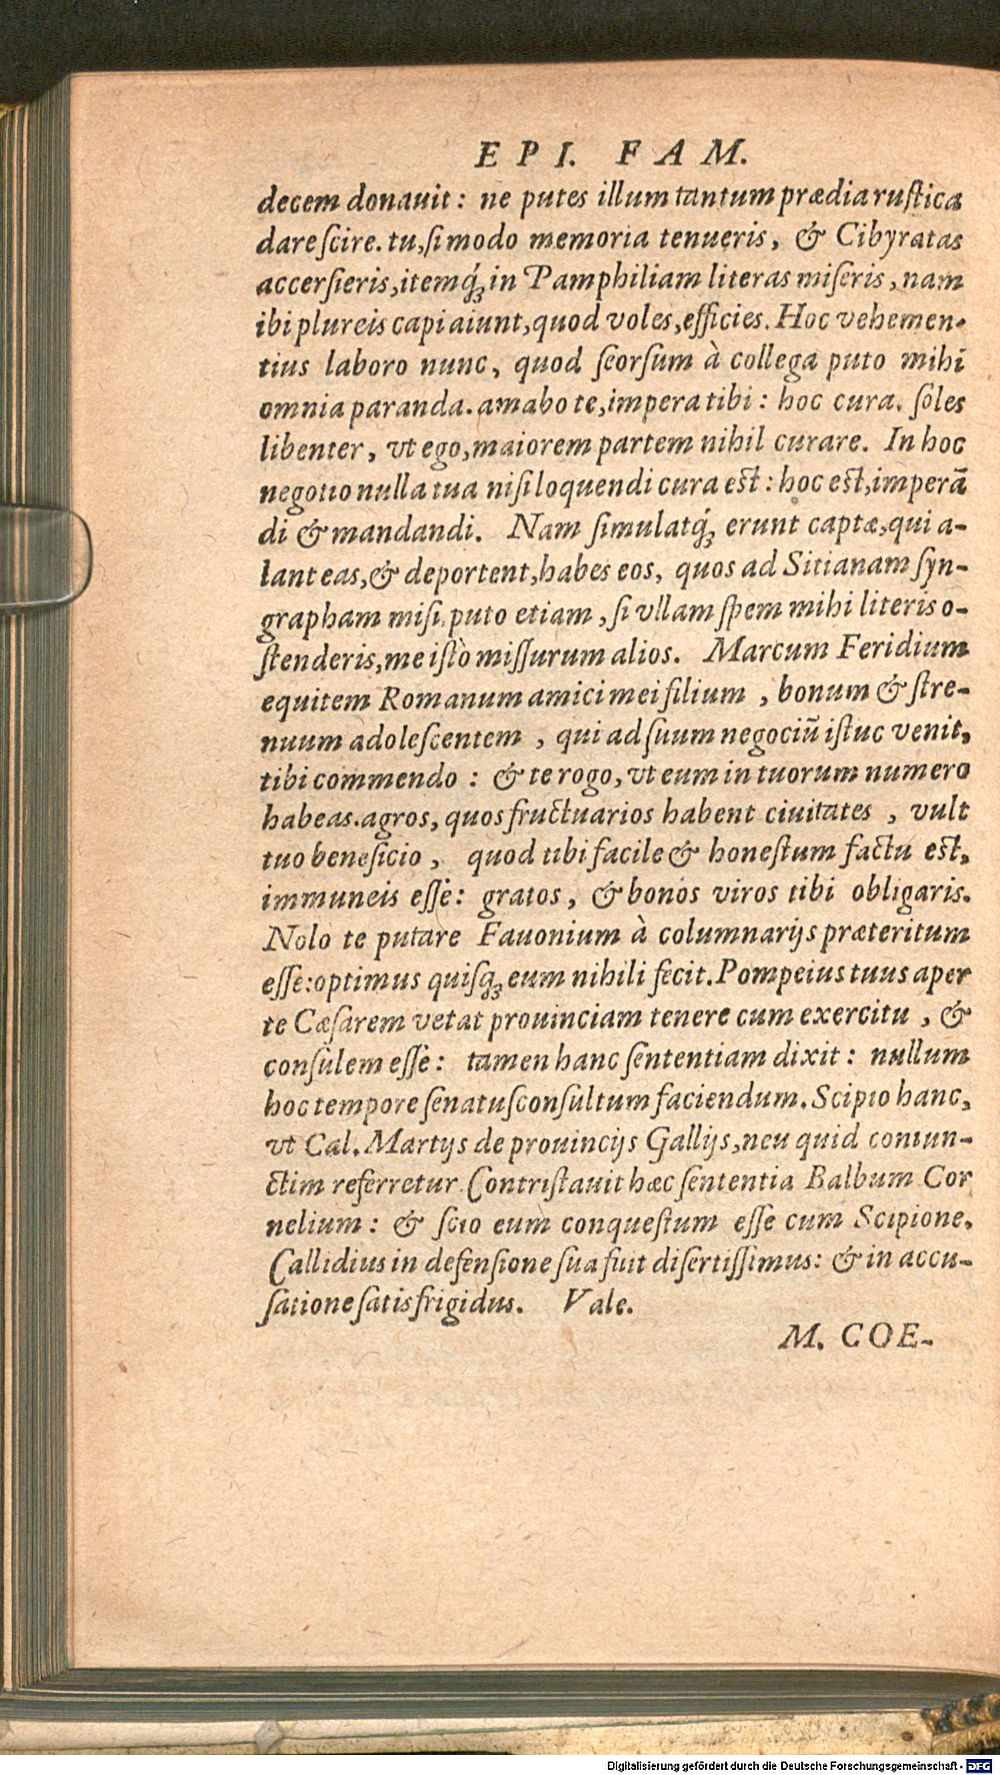 EPI. FAM.
decem donauit: ne putes illum tantum prædia rustica
dare scire. tu, si modo memoria tenueris, & Cibyratas
accersieris, itemq́; in Pamphiliam literas miseris, nam
ibi plureis capi aiunt, quod voles, efficies. Hoc vehemen-
tius laboro nunc, quod seorsum à collega puto mihi
omnia paranda. amabo te, impera tibi: hoc cura. soles
libenter, vt ego, maiorem partem nihil curare. In hoc
negotio nulla tua nisi loquendi cura est: hoc est, imperā
di & mandandi. Nam simulatq́; erunt captæ, qui a-
lant eas, & deportent, habes eos, quos ad Sitianam syn-
grapham misi. puto etiam, si vllam spem mihi literis o-
stenderis, me istò missurum alios. Marcum Feridium
equitem Romanum amici mei filium, bonum & stre-
nuum adolescentem, qui ad suum negociū istuc venit,
tibi commendo: & te rogo, vt eum in tuorum numero
habeas. agros, quos fructuarios habent ciuitates, vult
tuo beneficio, quod tibi facile & honestum factu est,
immuneis esse: gratos, & bonos viros tibi obligaris.
Nolo te putare Fauonium à columnarijs præteritum
esse: optimus quisq; eum nihili fecit. Pompeius tuus aper
te Cæsarem vetat prouinciam tenere cum exercitu, &
consulem esse: tamen hanc sententiam dixit: nullum
hoc tempore senatusconsultum faciendum. Scipio hanc,
vt Cal. Martijs de prouincijs Gallijs, neu quid coniun-
ctim referretur. Contristauit hæc sententia Balbum Cor
nelium: & scio eum conquestum esse cum Scipione.
Callidius in defensione sua fuit disertissimus: & in accu-
satione satis frigidus. Vale.
M. COE-
Digitalisierung gefördert durch die Deutsche Forschungsgemeinschaft - DFG